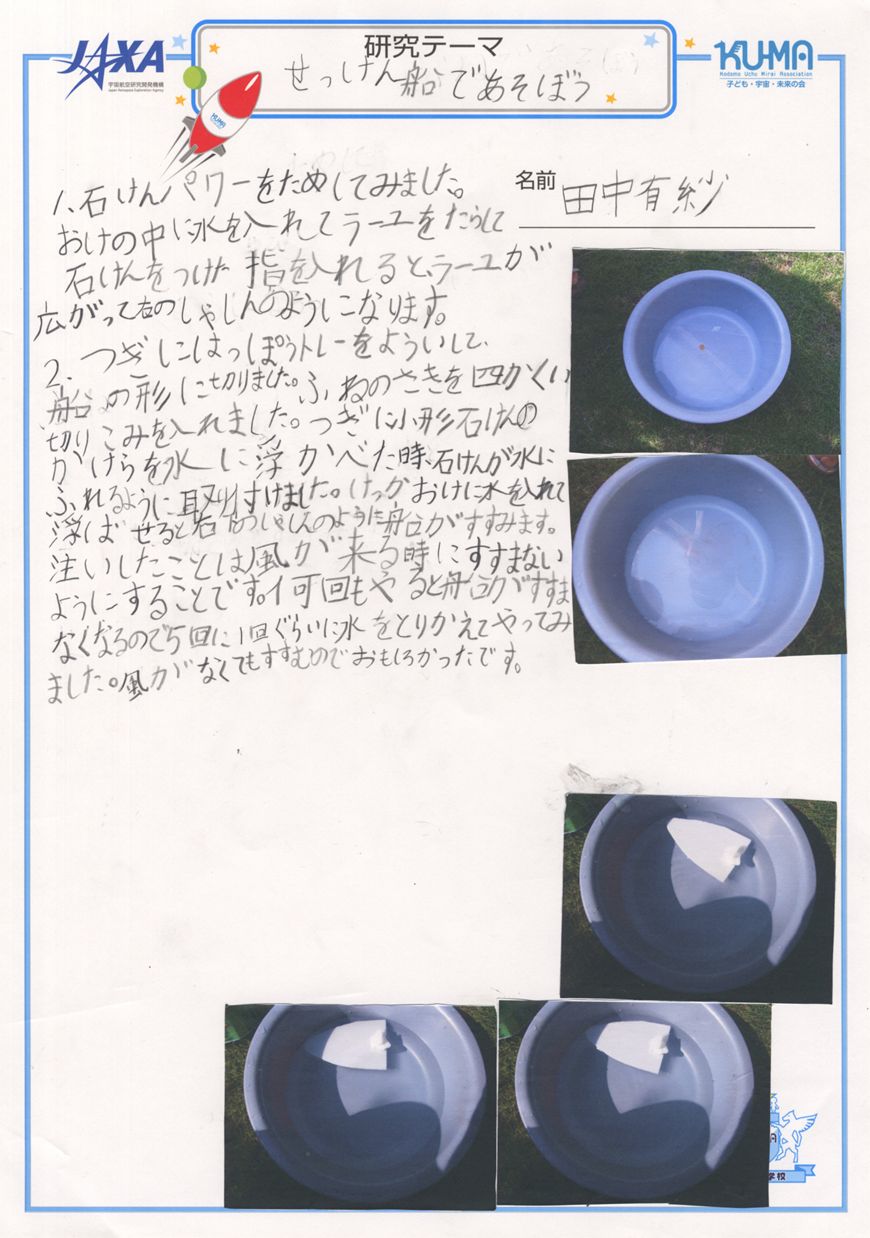 JAXA
宇宙航空研究開発機構
Japan Aerospace Exploration Agency
研究テーマ
せっけん船であそぼう
KUMA
Kodomo Uchu Mirai Association
子ども・宇宙・未来の会
KUMA
名前 田中有紗
1、石けんパワーをためしてみました。
おけの中に水を入れてラーユをたらして
石けんをつけた指を入れると、ラーユが
広がって右のしゃしんのようになります。
2、つぎにはっぽうトレーをよういして、
船の形に切りました。ふねのさきを四かくい
切りこみを入れました。つぎに小形石けんの
かけらを水に浮かべた時、石けんが水に
ふれるように取り付けました。けっかおけに水を入れて
浮ばせると右下のしゃしんのように船がすすみます。
注いしたことは風が来る時にすすまない
ようにすることです。何回もやると船がすすま
なくなるので5回に1回ぐらいに水をとりかえてやってみ
ました。風がなくてもすすむのでおもしろかったです。
学校